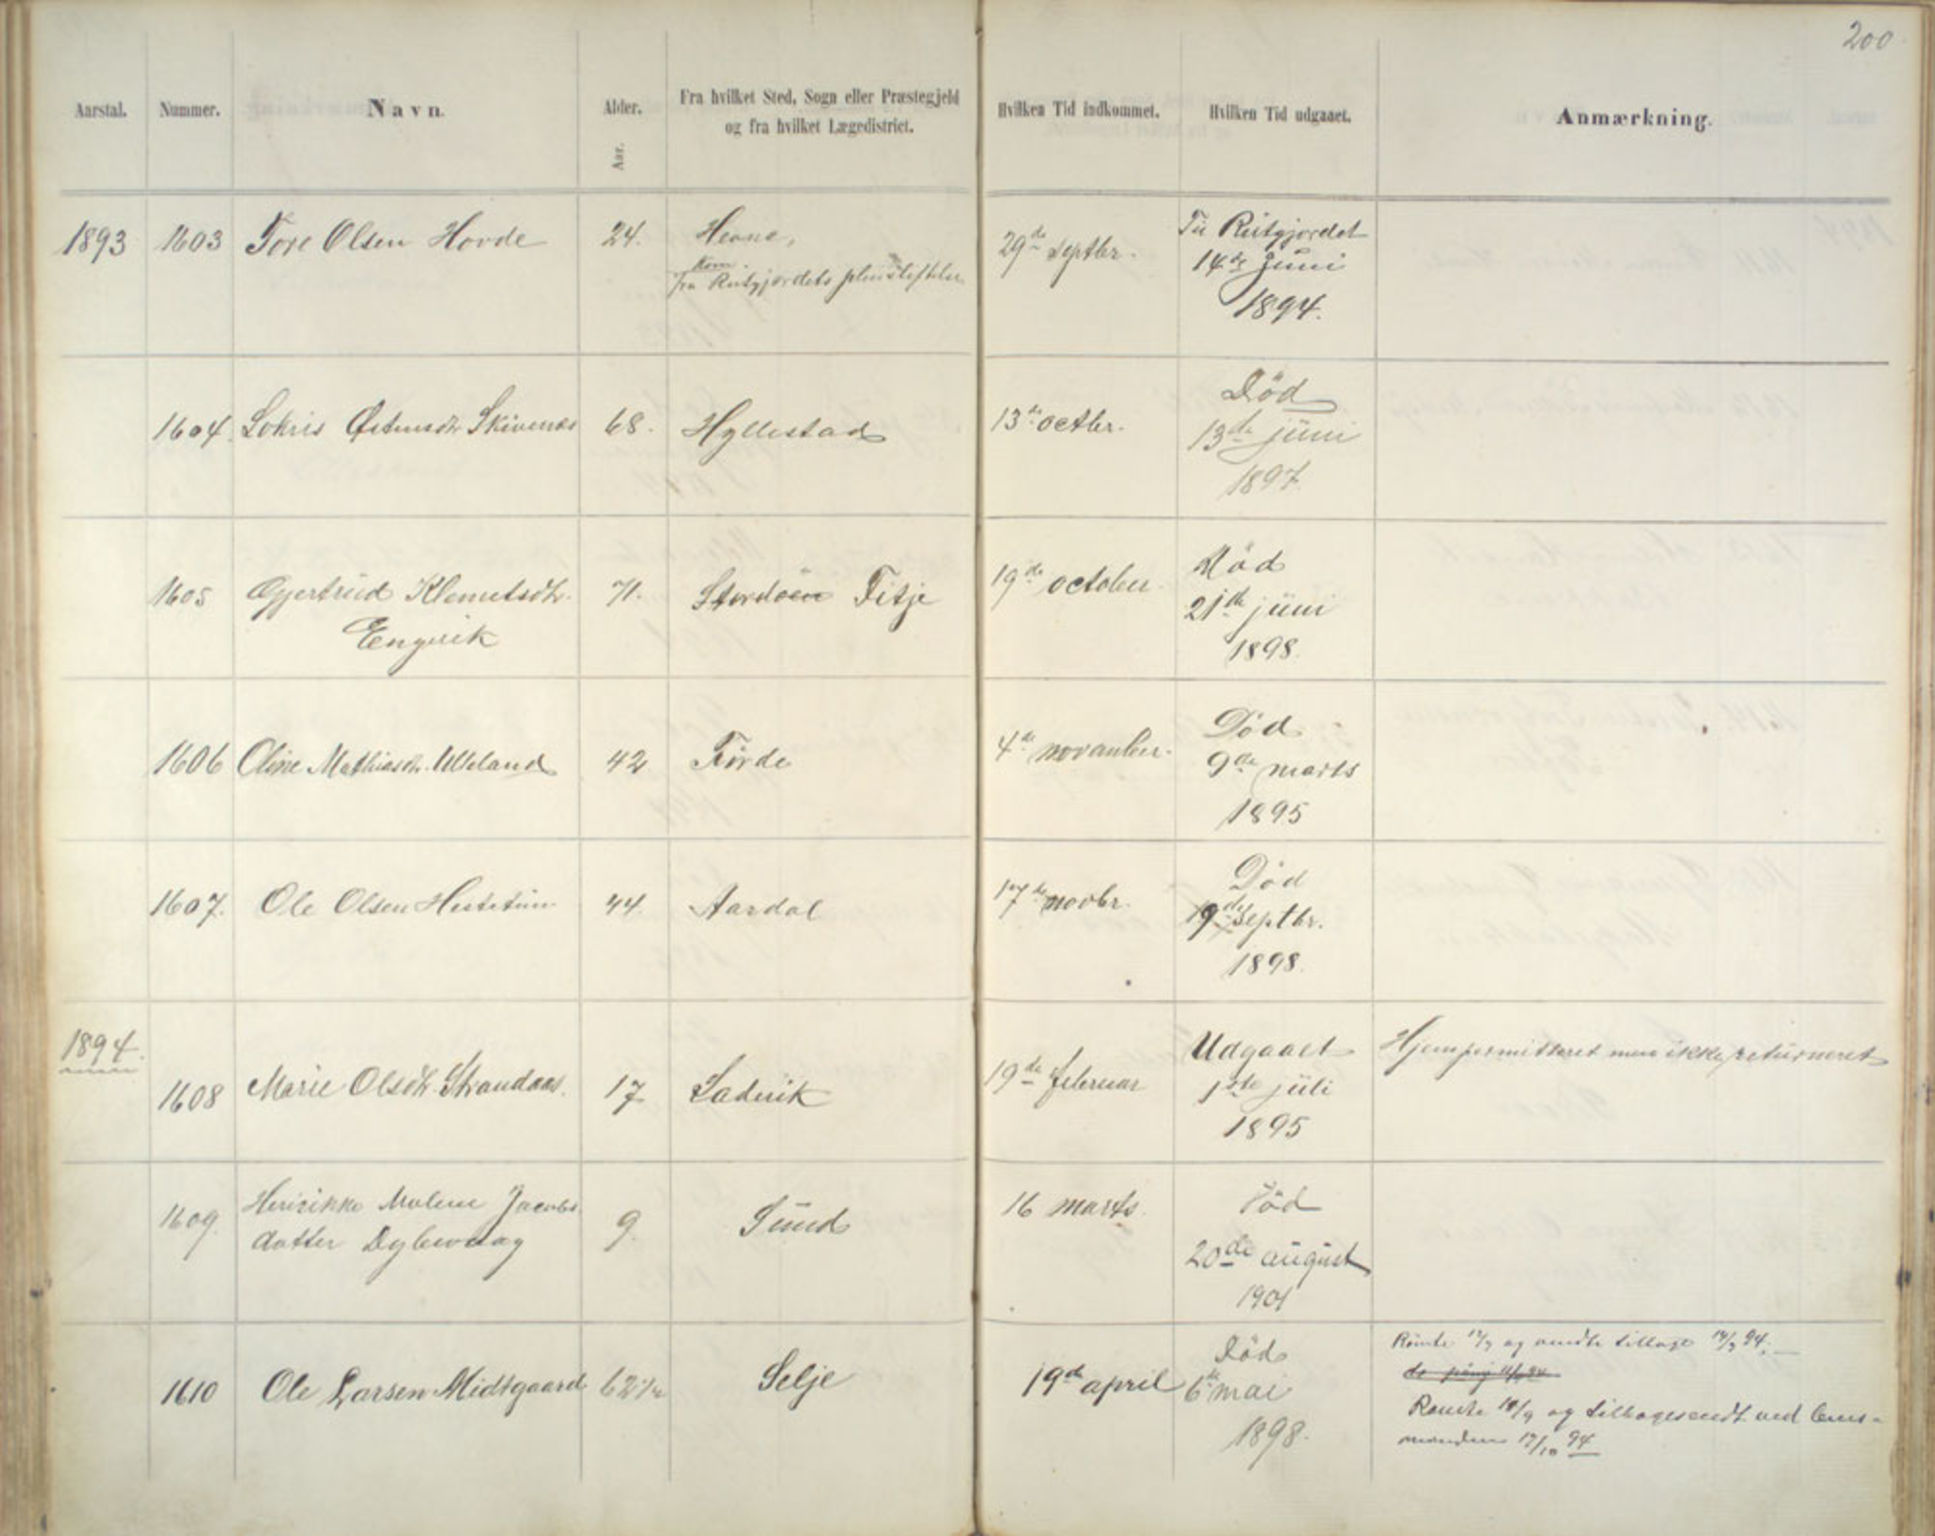 200
Aarstal. Nummer. Navn. Alder. Aar. Fra hvilket Sted, Sogn eller Præstegjeld og fra hvilket Lægedistrict. Hvilken Tid indkommet. Hvilken Tid udgaaet. Anmærkning.
1893 1603 Tore Olsen Hovde 24. 29de Septbr. Til Reitgjerdet
Kom
fra Reitgjerdets pleiestiftelse
14de Juni
1894.
1604. Østensdtr Skivenes 68. Hyllestad 13de octbr. Død
13de juni
1897.
1605 Gjertrud Klemetsdtr. 71. Stordøen Fitje 19de october. Død
Engvik
21de juni
1898.
1606 Oline Mathiasdr. Ulleland 42 Førde 4de november. Død
9de marts
1895
1607. Ole Olsen Hestetun 44. Aardal 17de novbr. Død
19de Septbr.
1898.
1894.
1608 Marie Olsdtr. Strandaas. 17 Ladvik 19de februar Udgaaet Hjempermitteret men ikke returneret
1ste juli
1895
1609. Henrikke Malene Jacobs 9. Sund 16 marts. Død
datter Dybevaag
20de august
1901
1610 Ole Larsen Midtgaard 62 1/2 Selje 19de april Død
6te mai
1898.
Rømte 12/7 og sendte tilbage 14/7 94.
Rømte 18/9 og tilbagesendt ved lens-
manden 12/10 94